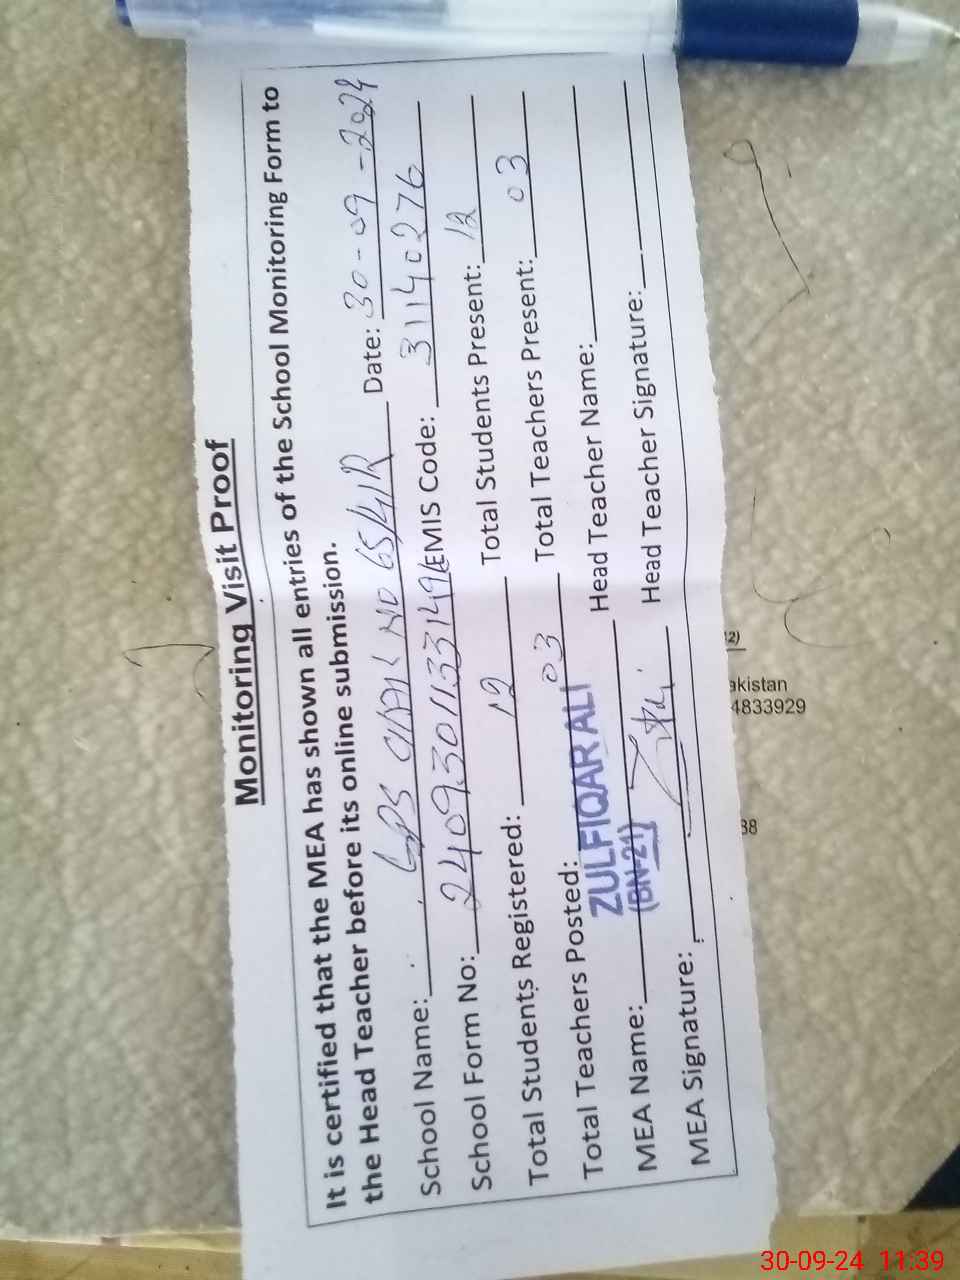 Monitoring Visit Proof
It is certified that the MEA has shown all entries of the School Monitoring Form to
the Head Teacher before its online submission.
School Name: GPS CHAK NO 65/4/R Date: 30-09-2024
School Form No: 2409301133149 EMIS Code: 31140276
Total Students Registered: 12 Total Students Present: 12
Total Teachers Posted: 03 Total Teachers Present: 03
MEA Name: ZULFIQAR ALI Head Teacher Name:
(BN-21)
MEA Signature: Head Teacher Signature:
2)
akistan
4833929
38
30-09-24 11:39